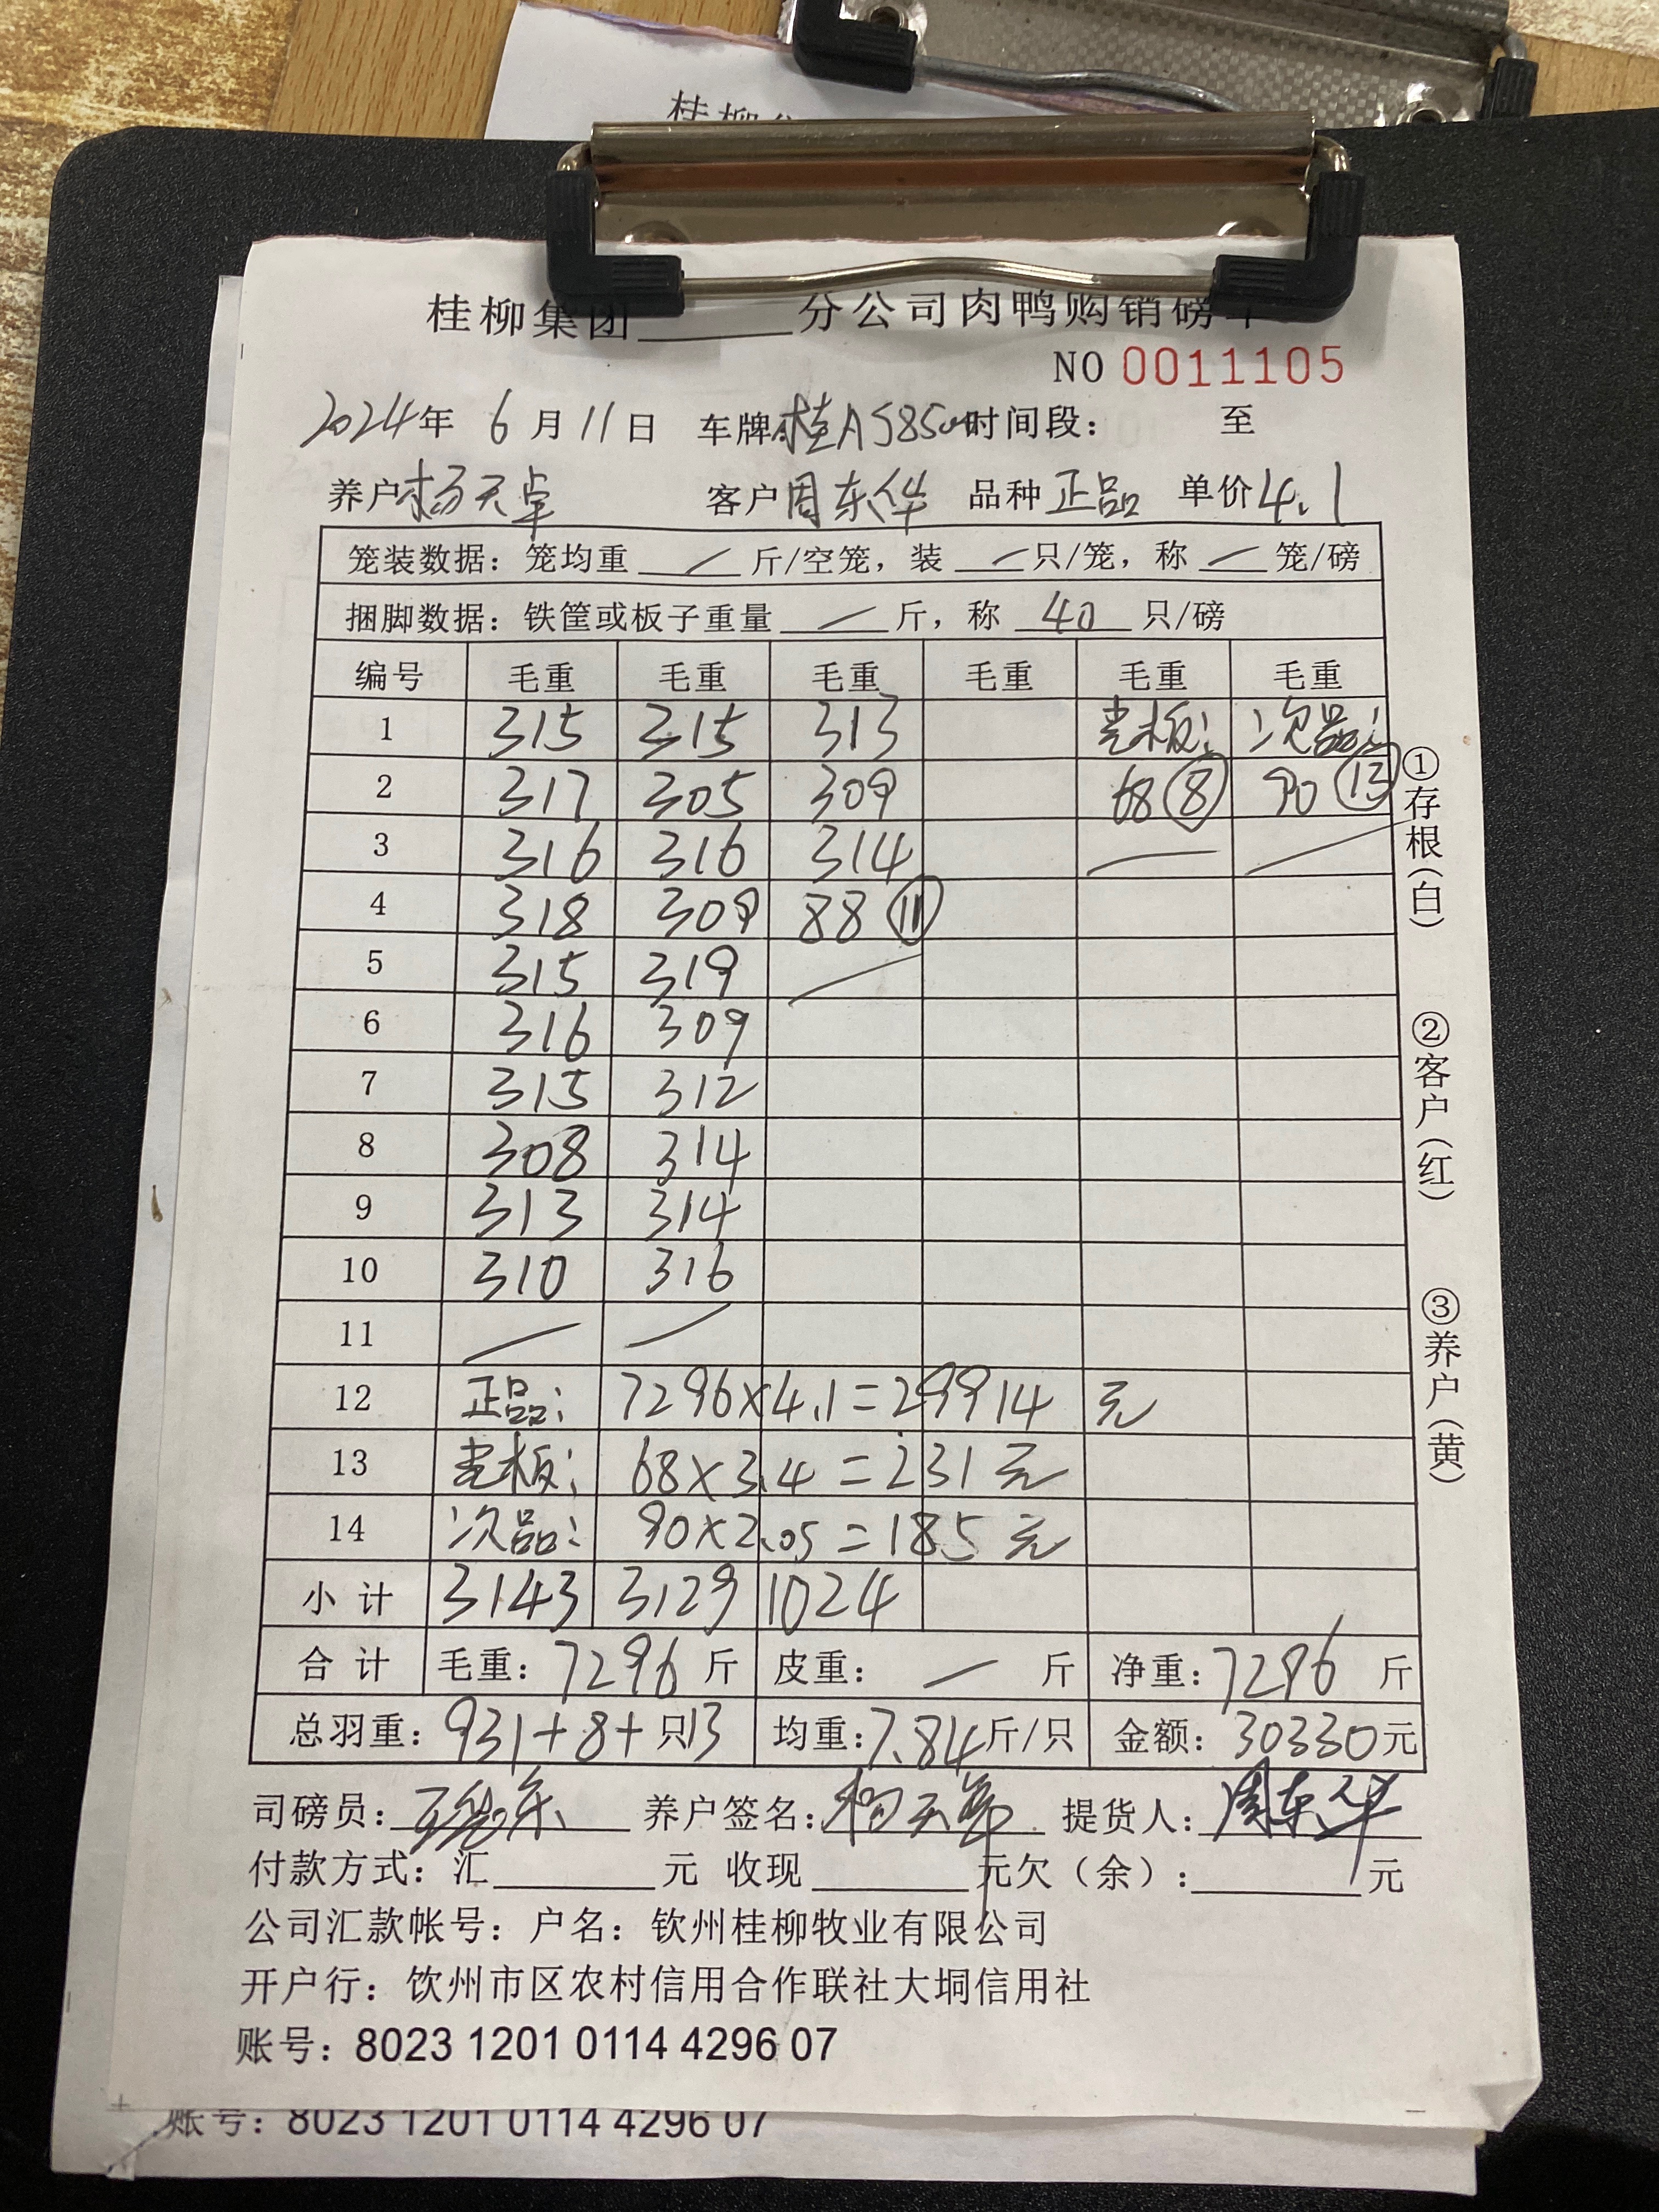 桂柳
桂柳集团______分公司肉鸭购销磅
NO 0011105
2024年 6月11日 车牌:桂A585 时间段: 至
养户 杨天卓 客户 周东华 品种 正品 单价 4.1
笼装数据: 笼均重 / 斤/空笼, 装 / 只/笼, 称 / 笼/磅
捆脚数据: 铁筐或板子重量 / 斤, 称 40 只/磅
编号 毛重 毛重 毛重 毛重 毛重 毛重
1 315 315 313 老板: 次品:
2 317 305 309 68 ⑧ 90 ⑬
3 316 316 314 / /
4 318 309 88 ⑪
5 315 319 /
6 316 309
7 315 312
8 308 314
9 313 314
10 310 316
11 / /
12 正品: 7296×4.1=29914 元
13 老板: 68×3.4=231元
14 次品: 90×2.05=185元
小计 3143 3129 1024
合计 毛重: 7296 斤 皮重: / 斤 净重: 7296 斤
总羽重: 931+8+ 只13 均重: 7.84斤/只 金额: 30330元
司磅员: 养户签名: 杨天卓 提货人: 周东华
付款方式: 汇______元 收现______元欠(余):______元
公司汇款帐号: 户名: 钦州桂柳牧业有限公司
开户行: 钦州市区农村信用合作联社大垌信用社
账号: 8023 1201 0114 4296 07
账号: 8023 1201 0114 4296 07
①存根(白)
②客户(红)
③养户(黄)